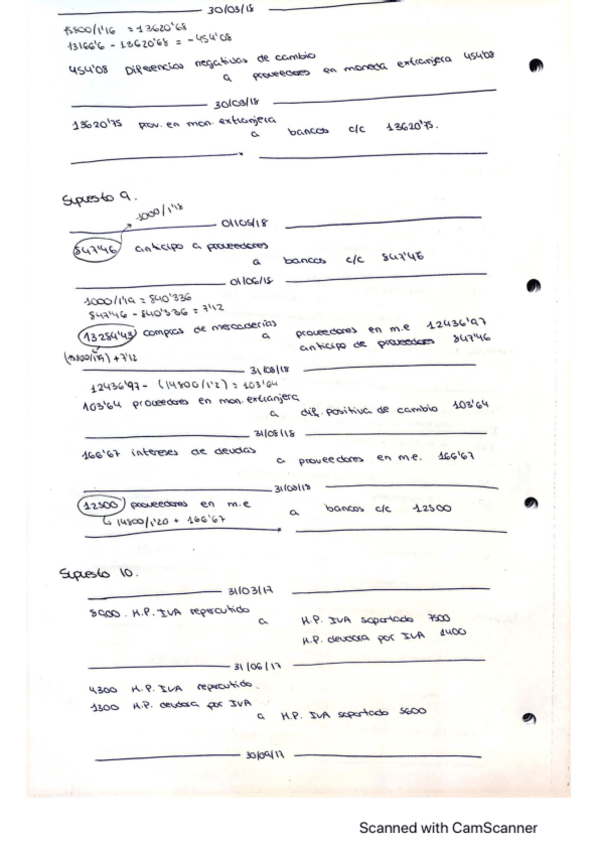 30/03/18
15800/1'16 = 13620'68
13166'6 - 13620'68 = -454'08
454'08 Diferencias negativas de cambio
a proveedores en moneda extranjera 454'08
30/03/18
13620'75 prov. en mon. extranjera
a bancos c/c 13620'75.
Supuesto 9.
1000/1'18
01/05/18
847'46 anticipo a proveedores
a bancos c/c 847'46
01/06/18
1000/1'19 = 840'336
847'46 - 840'336 = 7'12
13284'43 compras de mercaderías
a proveedores en m.e 12436'97
anticipo de proveedores 847'46
+ 7'12
31/08/18
12436'97 - (14800/1'2) = 103'64
103'64 proveedores en mon. extranjera
a dif. positiva de cambio 103'64
31/08/18
166'67 intereses de deudas
a proveedores en m.e. 166'67
31/08/18
12500 proveedores en m.e
a bancos c/c 12500
14800/1'20 + 166'67
Supuesto 10.
31/03/17
8900 H.P. IVA repercutido
a H.P. IVA soportado 7500
H.P. deudora por IVA 1400
31/06/17
4300 H.P. IVA repercutido.
1300 H.P. deudora por IVA
a H.P. IVA soportado 5600
30/09/17
Scanned with CamScanner